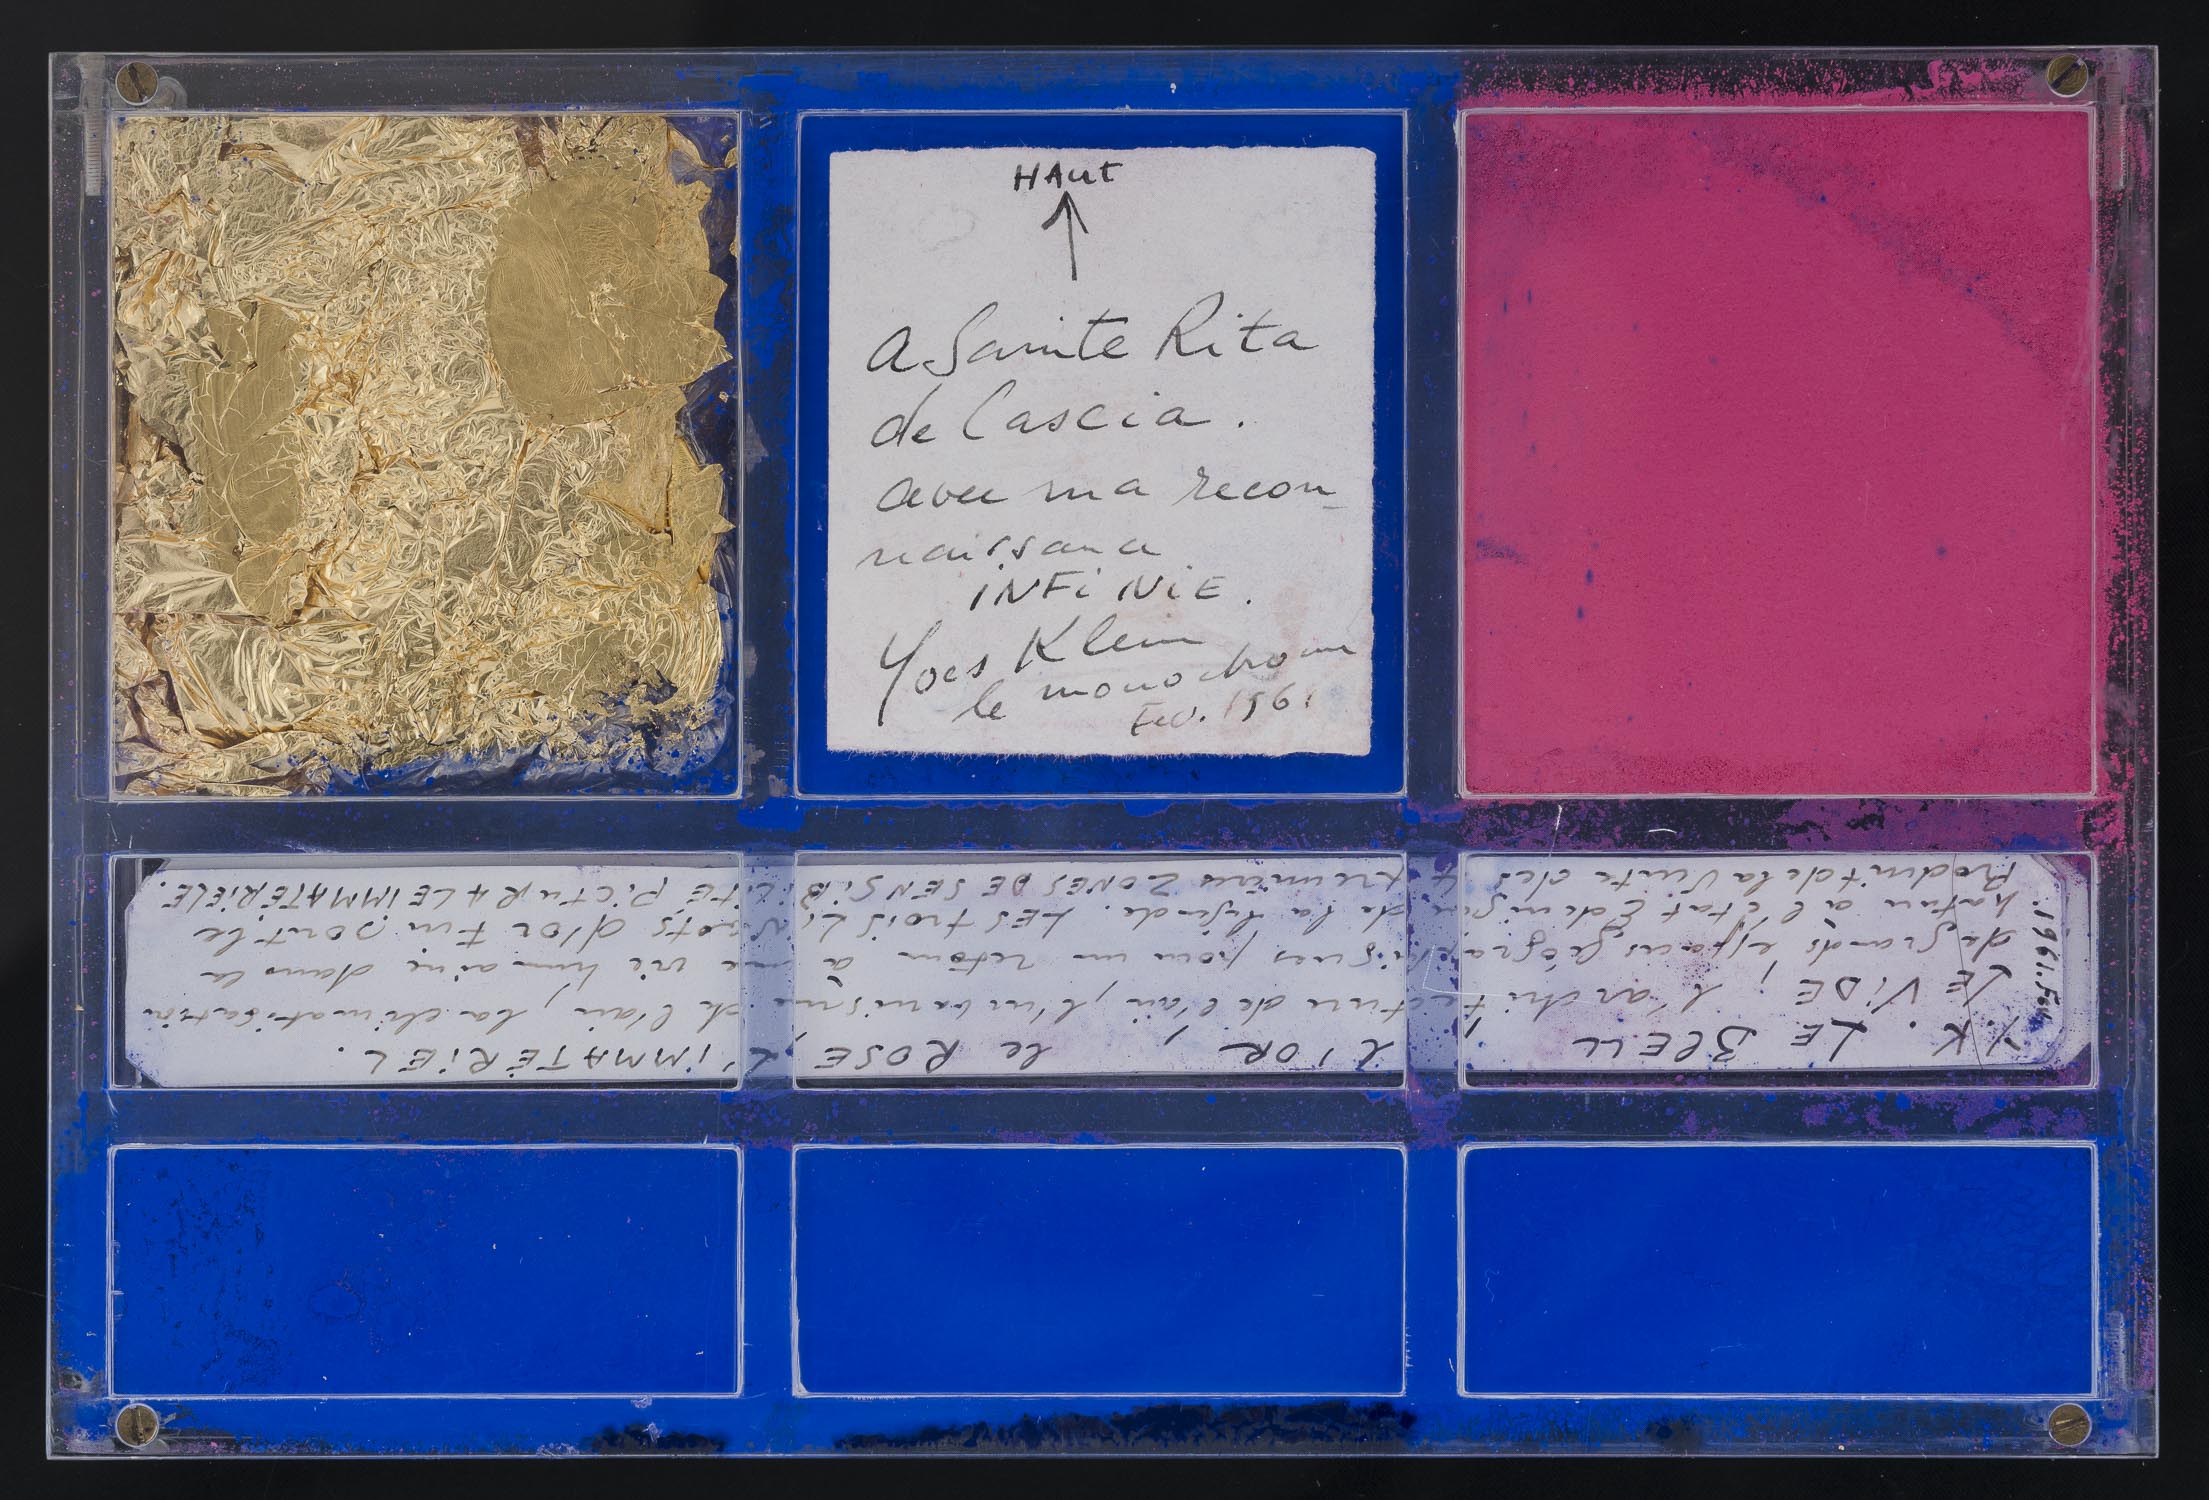 HAUT
A Sainte Rita
de Cascia.
avec ma recon-
naissance
iNFiNiE.
Yves Klein
le monochrome
Fev. 1961
Y.K. LE BLEU L'OR, le ROSE, L'iMMATÉRiEL.
LE ViDE, l'architecture de l'air, l'urbanisme de l'air, la climatisation
de grands espaces géographiques pour un retour à une vie humaine dans la
nature à l'état Edenique de la légende. LES trois Lingots d'or fin sont le
Produit de la Vente des 4 premières ZONES DE SENSiBiLiTÉ PiCTURALE IMMATERiELE.
1961. Fev.